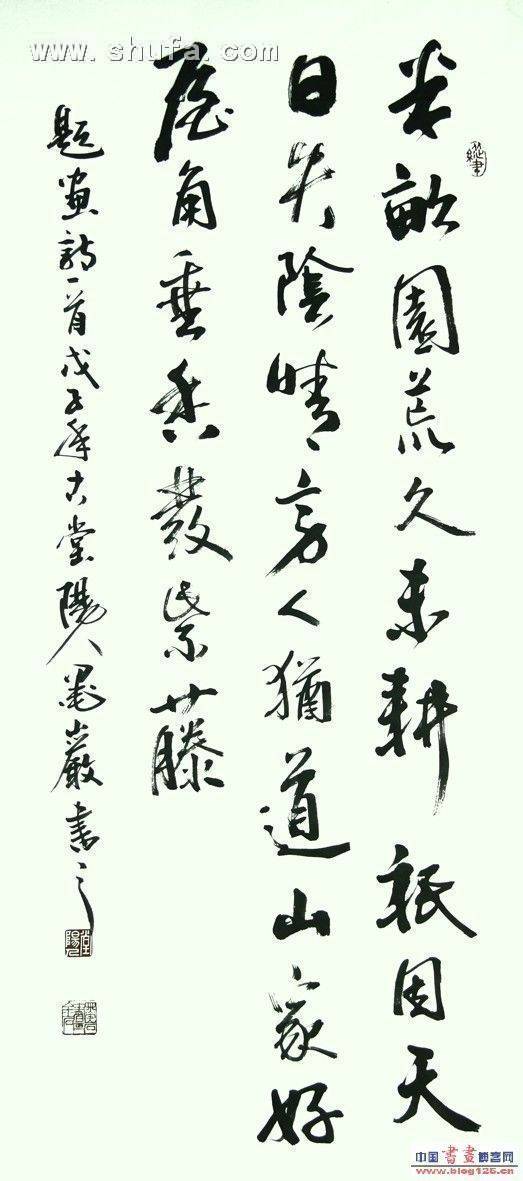 www.shufa.com
半畝園荒久未耕祇因天
日失陰晴旁人猶道山家好
屋角垂香發紫藤
題畫詩一首戊子年古堂陽人墨巖書之
中国書畫博客网
www.blog125.cn